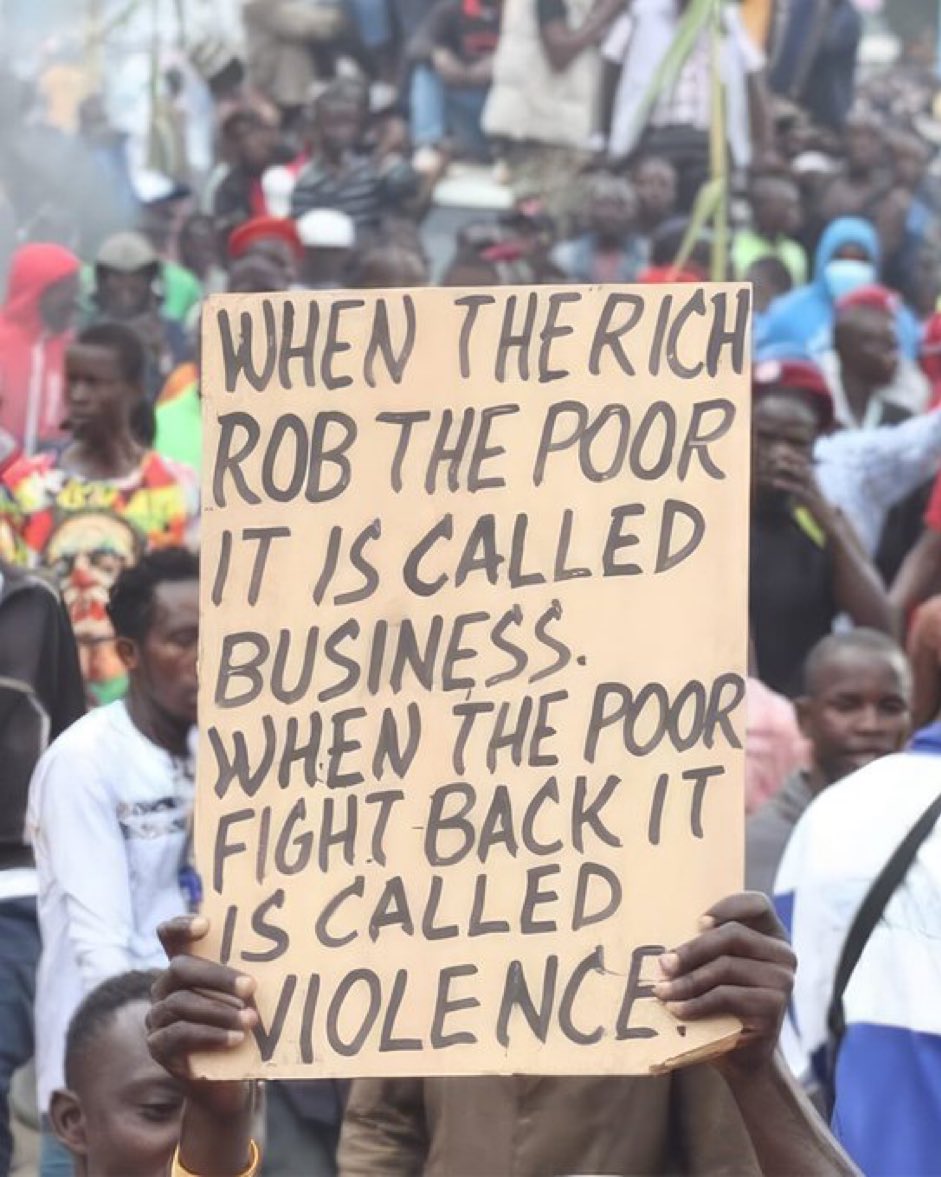 WHEN THE RICH
ROB THE POOR
IT IS CALLED
BUSINESS.
WHEN THE POOR
FIGHT BACK IT
IS CALLED
VIOLENCE.